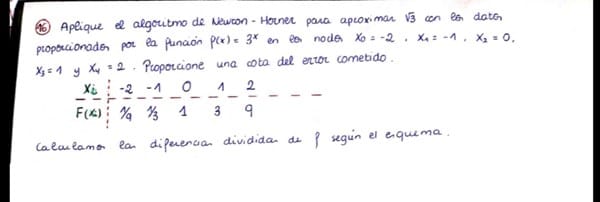 16 Aplique el algoritmo de Newton - Horner para aproximar √3 con los datos
proporcionados por la función f(x) = 3ˣ en los nodos X₀ = -2 , X₁ = -1 , X₂ = 0,
X₃ = 1 y X₄ = 2 . Proporcione una cota del error cometido.
Xi -2 -1 0 1 2
F(Xi) 1/9 1/3 1 3 9
Calculamos las diferencias divididas de f según el esquema.